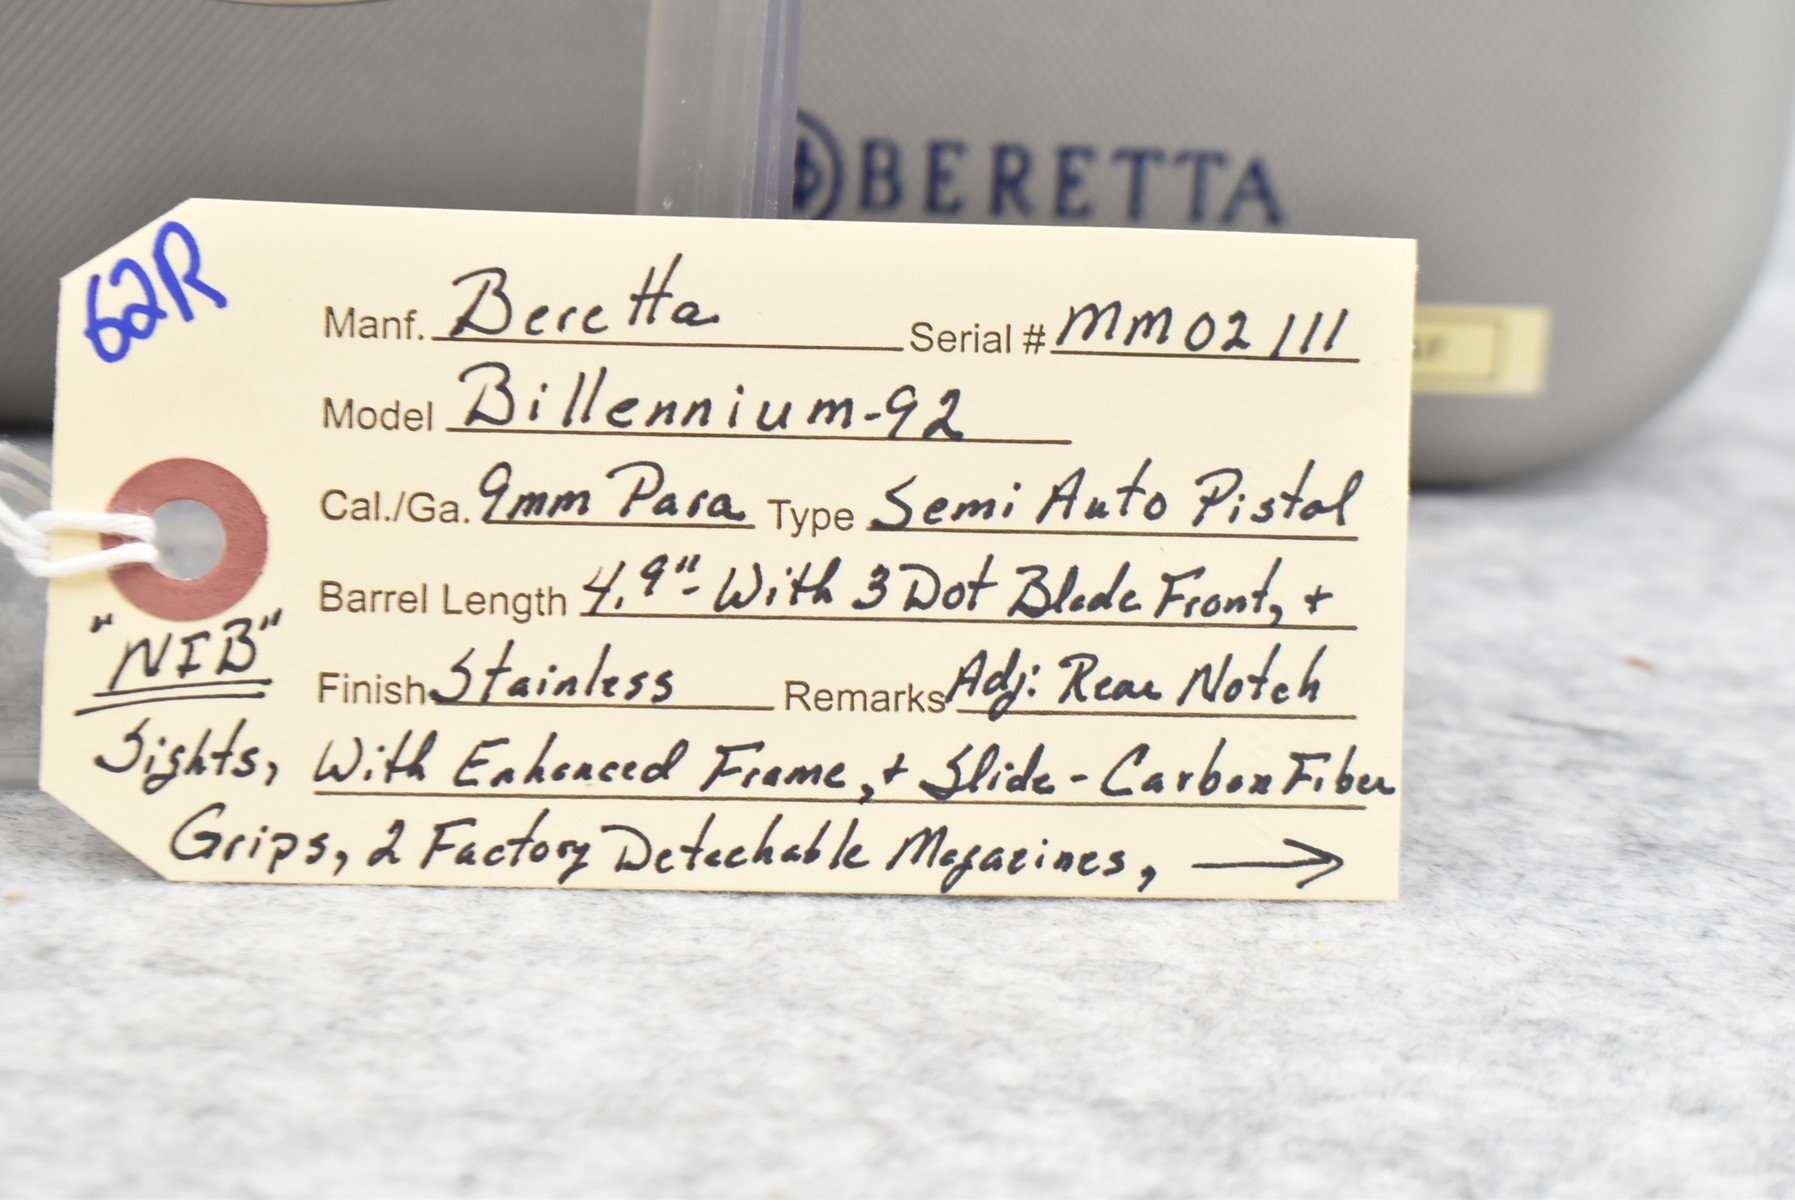 BERETTA
62R
Manf. Beretta Serial # MM02111
Model Billennium-92
Cal./Ga. 9mm Para Type Semi Auto Pistol
Barrel Length 4.9"- With 3 Dot Blade Front, +
"NIB"
Finish Stainless Remarks Adj: Rear Notch
Sights, With Enhanced Frame, + Slide - Carbon Fiber
Grips, 2 Factory Detachable Magazines, →